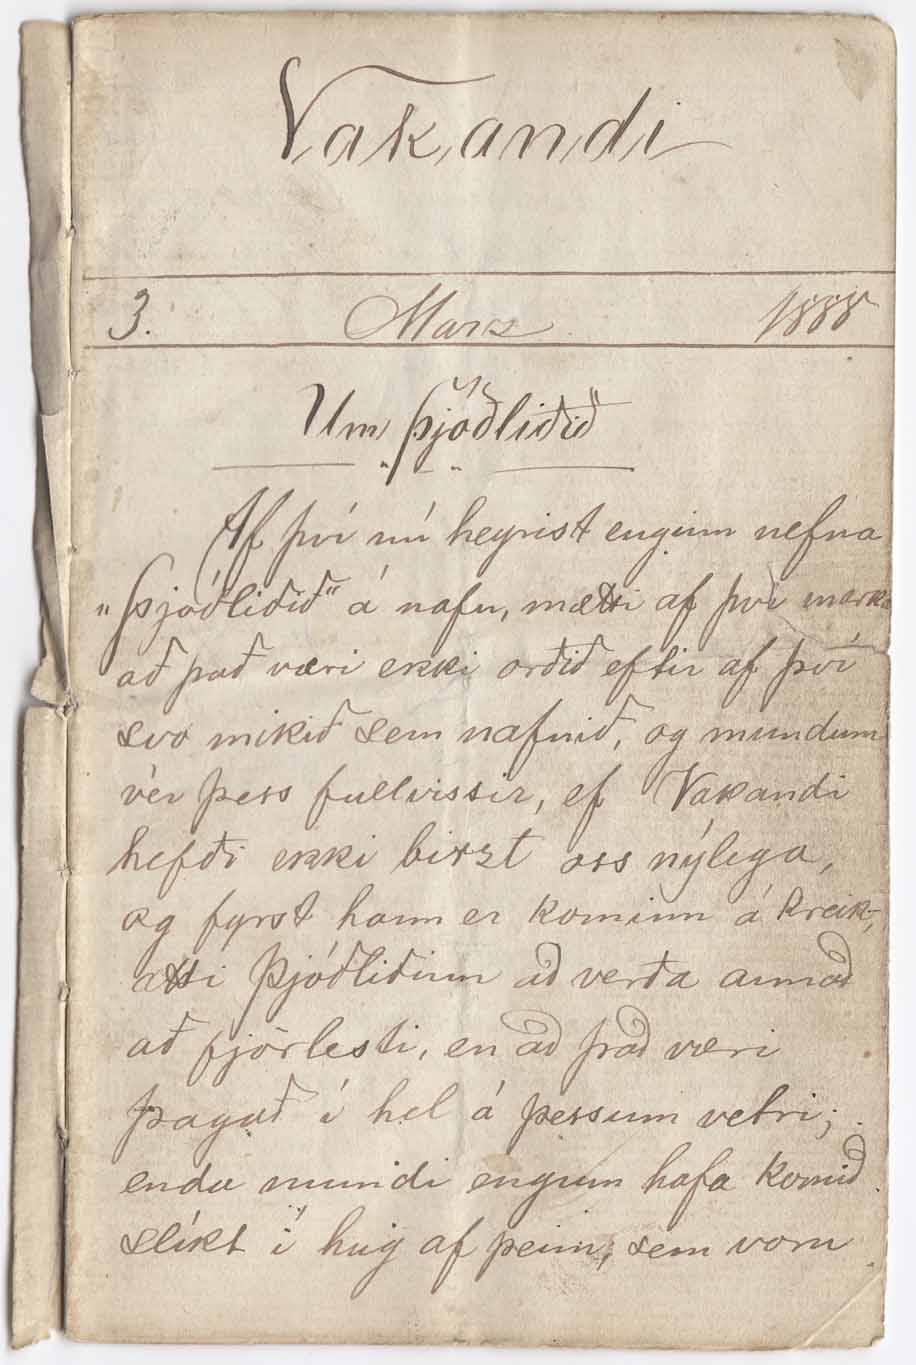 Vakandi
3. Marz 1888
Um Þjóðliðið
Af því nú heyrist enginn nefna
„Þjóðliðið“ á nafn, mætti af því marka
að það væri ekki orðið eftir af því
svo mikið sem nafnið, og mundum
vér þess fullvissir, ef Vakandi
hefði ekki birzt oss nýlega,
og fyrst hann er kominn á kreik,
ætti Þjóðliðinu að verða annað
að fjörlesti, en að það væri
þagað í hel á þessum vetri;
enda mundi engum hafa komið
slíkt í hug af þeim, sem voru